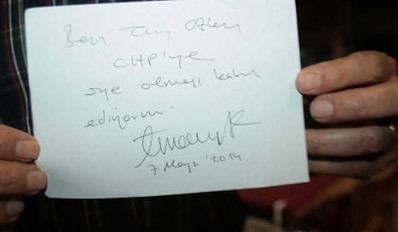 Ben Tarık Özlen
CHP'ye
üye olmayı kabul
ediyorum.
7 Mayıs '2014